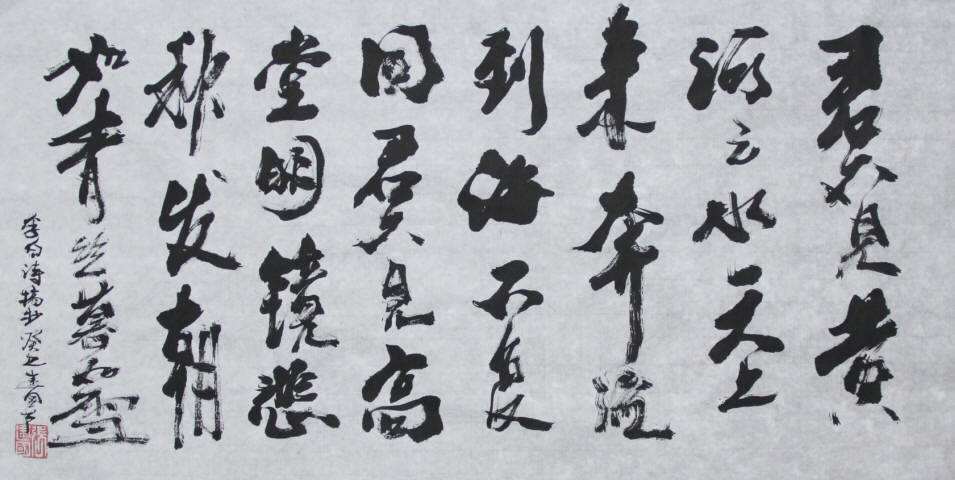 君不见黄
河之水天上
来奔流
到海不复
回君不见高
堂明镜悲
发朝
如青丝暮雪
李白诗摘书癸巳建国书